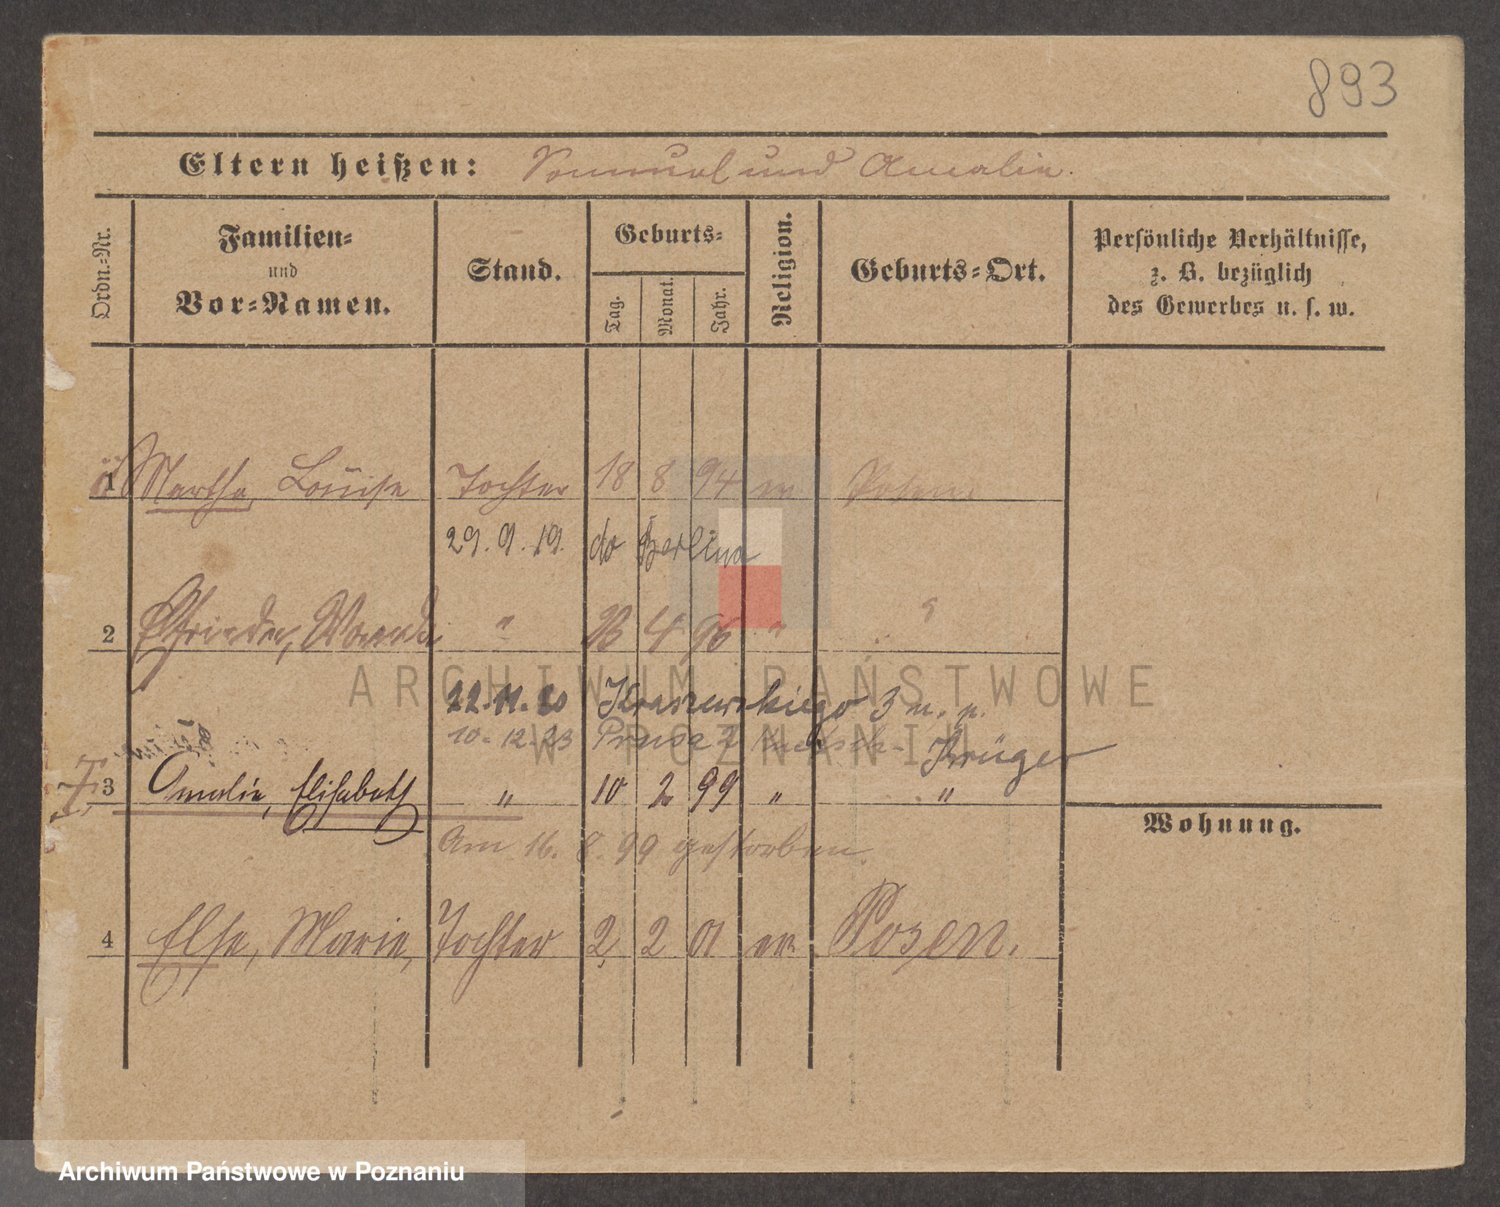 893
Eltern heißen: Samuel und Amalie.
Ordn.-Nr.
Familien-
und
Vor-Namen.
Stand.
Geburts-
Tag.
Monat.
Jahr.
Religion.
Geburts-Ort.
Persönliche Verhältnisse,
z. B. bezüglich
des Gewerbes u. s. w.
1 Martha, Louise Tochter 18 8 94 ev Posen
29. 9. 19. do Berlina
2 Elfriede, Wanda " 4 96 " "
22. 11. 20 Kraszewskiego 3 u. p.
10. 12. 23 Prusa Krüger
3 Amalie, Elisabeth " 10 2 99 " "
Am 16. 8. 99 gestorben.
Wohnung.
4 Else, Marie, Tochter 2 2 01 ev. Posen.
ARCHIWUM PAŃSTWOWE
W POZNANIU
Archiwum Państwowe w Poznaniu